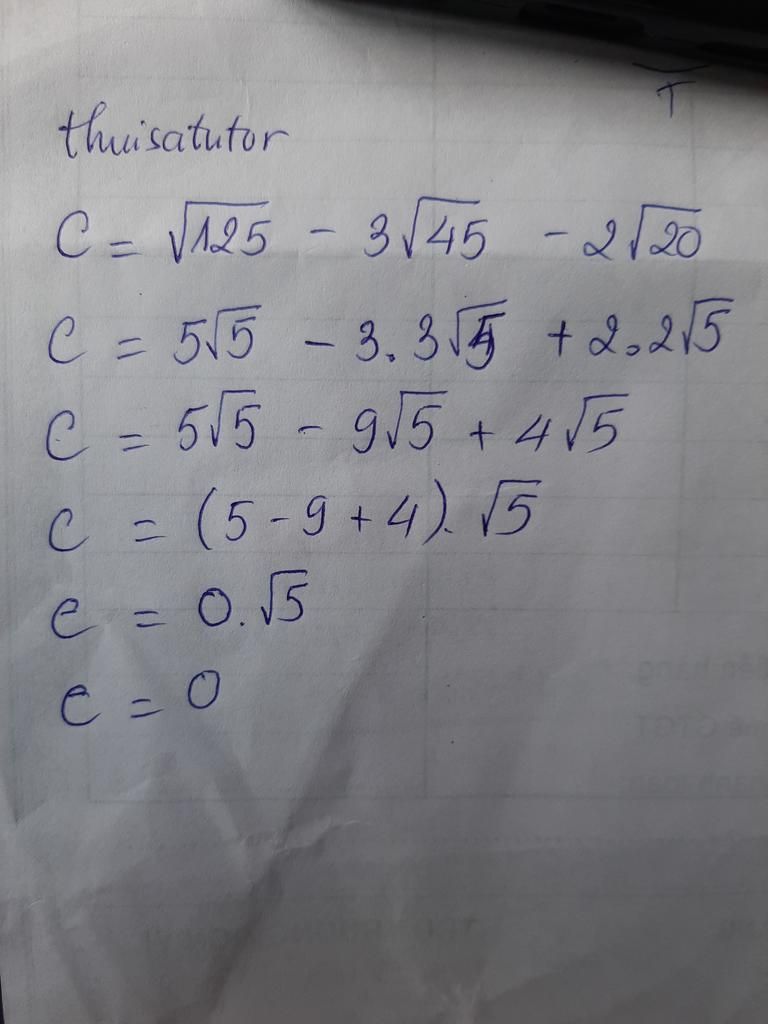 T
thuisatutor
C = √125 - 3√45 - 2√20
C = 5√5 - 3.3√5 + 2.2√5
C = 5√5 - 9√5 + 4√5
C = (5 - 9 + 4).√5
C = 0.√5
C = 0